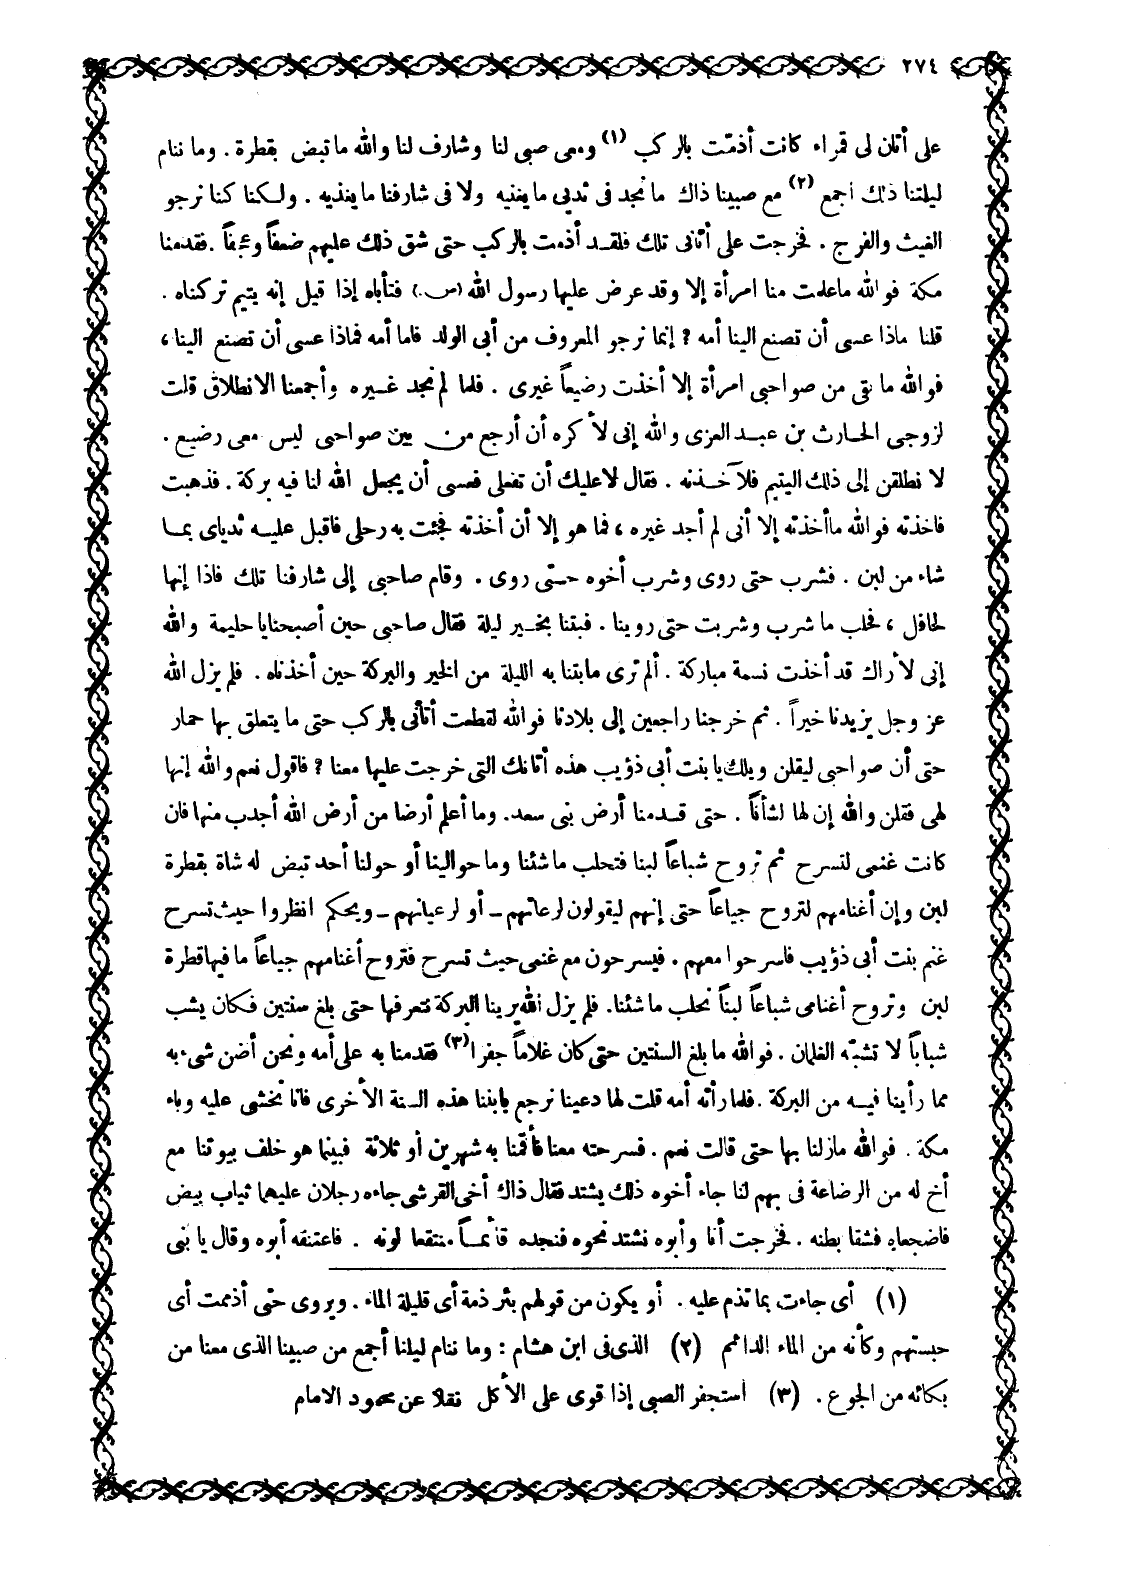 ٢٧٤
على أتان لى قمراء كانت أذمّت بالركب (١) ومعى صبى لنا وشارف لنا والله ما تبض بقطرة . وما ننام
ليلتنا ذلك اجمع (٢) مع صبينا ذاك ما نجد فى ثديى ما يغنيه ولا فى شارفنا ما يغذيه . ولكنا كنا نرجو
الغيث والفرج . فخرجت على أتانى تلك فلقد أذمت بالركب حتى شق ذلك عليهم ضعفاً وعجفاً . فقدمنا
مكة فوالله ما علمت منا امرأة إلا وقد عرض عليها رسول الله (ص.) فتأباه إذا قيل إنه يتيم تركناه .
قلنا ماذا عسى أن تصنع الينا أمه ? إنما نرجو المعروف من أبى الولد فاما أمه فماذا عسى أن تصنع الينا ،
فوالله ما بقى من صواحبى امرأة إلا أخذت رضيعاً غيرى . فلما لم نجد غيره وأجمعنا الانطلاق قلت
لزوجى الحارث بن عبد العزى والله إنى لأ كره أن أرجع من بين صواحبى ليس معى رضيع .
لا نطلقن إلى ذلك اليتيم فلآخذنه . فقال لا عليك أن تفعلى فعسى أن يجعل الله لنا فيه بركة . فذهبت
فاخذته فوالله ما أخذته إلا أنى لم أجد غيره ، فما هو إلا أن أخذته فجئت به رحلى فاقبل عليه ثدياى بما
شاء من لبن . فشرب حتى روى وشرب أخوه حتى روى . وقام صاحبى إلى شارفنا تلك فاذا إنها
لحافل ، فحلب ما شرب وشربت حتى روينا . فبتنا بخير ليلة فقال صاحبى حين أصبحنا يا حليمة والله
إنى لأراك قد أخذت نسمة مباركة . ألم ترى ما بتنا به الليلة من الخير والبركة حين أخذناه . فلم يزل الله
عز وجل يزيدنا خيراً . ثم خرجنا راجعين إلى بلادنا فوالله لقطعت أتانى بالركب حتى ما يتعلق بها حمار
حتى أن صواحبى ليقلن ويلك يا بنت أبى ذؤيب هذه أتانك التى خرجت عليها معنا ? فاقول نعم والله إنها
لهى فقلن والله إن لها لشأناً . حتى قدمنا أرض بنى سعد. وما أعلم أرضا من أرض الله أجدب منها فان
كانت غنمى لتسرح ثم تروح شباعاً لبنا فتحلب ما شئنا وما حوالينا أو حولنا أحد تبض له شاة بقطرة
لبن وإن أغنامهم لتروح جياعاً حتى إنهم ليقولون لرعاتهم – أو لرعيانهم – ويحكم انظروا حيث تسرح
غنم بنت أبى ذؤيب فاسرحوا معهم . فيسرحون مع غنمى حيث تسرح فتروح أغنامهم جياعاً ما فيها قطرة
لبن وتروح أغنامى شباعاً لبناً نحلب ما شئنا. فلم يزل الله يرينا البركة نتعرفها حتى بلغ سنتين فكان يشب
شباباً لا تشبّه الغلمان . فوالله ما بلغ السنتين حتى كان غلاماً جفرا (٣) فقدمنا به على أمه ونحن أضن شىء به
مما رأينا فيه من البركة . فلما رأته أمه قلت لها دعينا نرجع بابننا هذه السنة الأخرى فانا نخشى عليه وباء
مكة . فوالله مازلنا بها حتى قالت نعم . فسرحته معنا فأقمنا به شهرين أو ثلاثة فبينما هو خلف بيوتنا مع
أخ له من الرضاعة فى بهم لنا جاء أخوه ذلك يشتد فقال ذاك أخى القرشى جاءه رجلان عليهما ثياب بيض
فاضجعاه فشقا بطنه . فخرجت أنا وأبوه نشتد نحوه فنجده قائماً منتقعا لونه . فاعتنقه أبوه وقال يا بنى
(١) أى جاءت بما تذم عليه . أو يكون من قولهم بئر ذمة أى قليلة الماء . ويروى حتى أذممت أى
حبستهم وكأنه من الماء الدائم (٢) الذى فى ابن هشام : وما ننام ليلنا أجمع من صبينا الذى معنا من
بكائه من الجوع . (٣) استجفر الصبى إذا قوى على الأكل نقلا عن محمود الامام